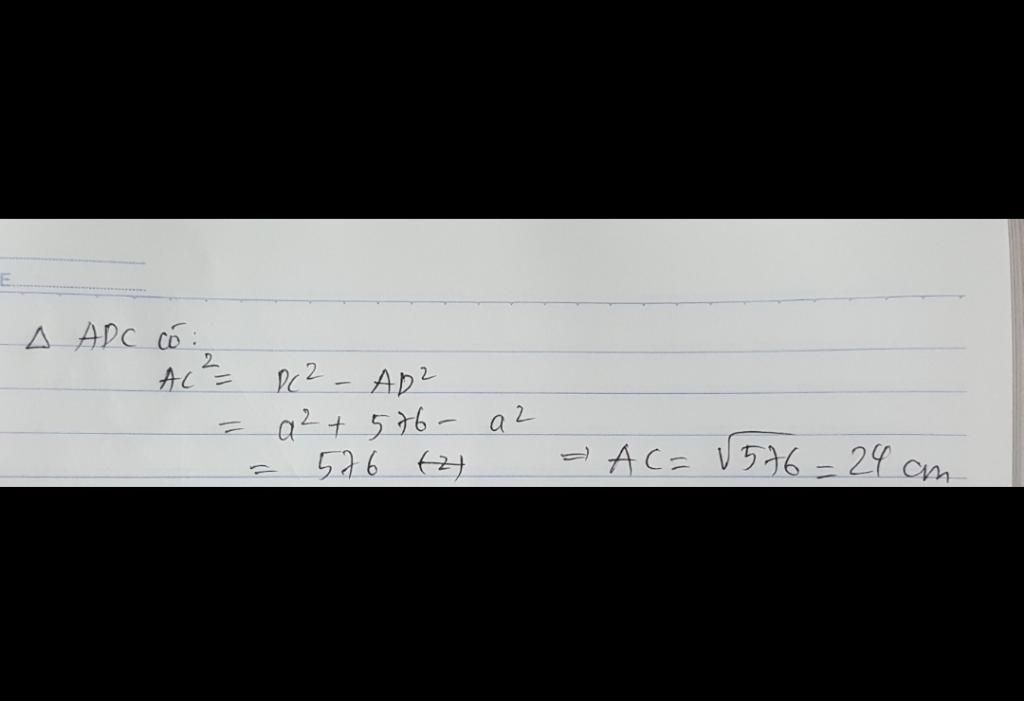 E
Δ ADC có:
AC² = DC² - AD²
= a² + 576 - a²
= 576 (2) ⇒ AC = √576 = 24 cm